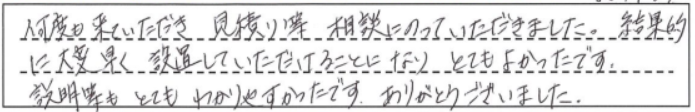 何度も来ていただき 見積り等 相談にのっていただきました。結果的
に大変早く 設置していただけることになり とてもよかったです。
説明等も とても わかりやすかったです。ありがとうございました。